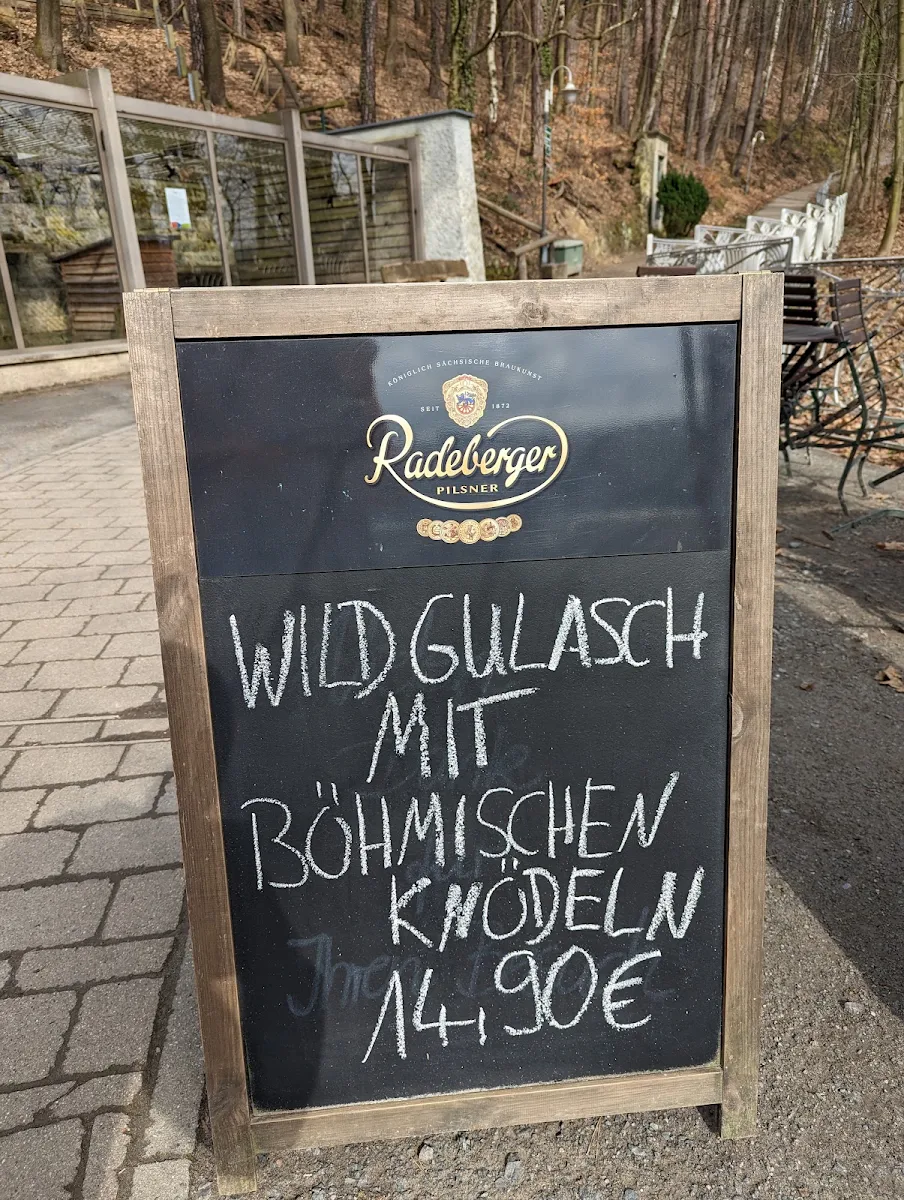 KÖNIGLICH SÄCHSISCHE BRAUKUNST
SEIT 1872
Radeberger
PILSNER
WILDGULASCH
MIT
BÖHMISCHEN
KNÖDELN
14,90€